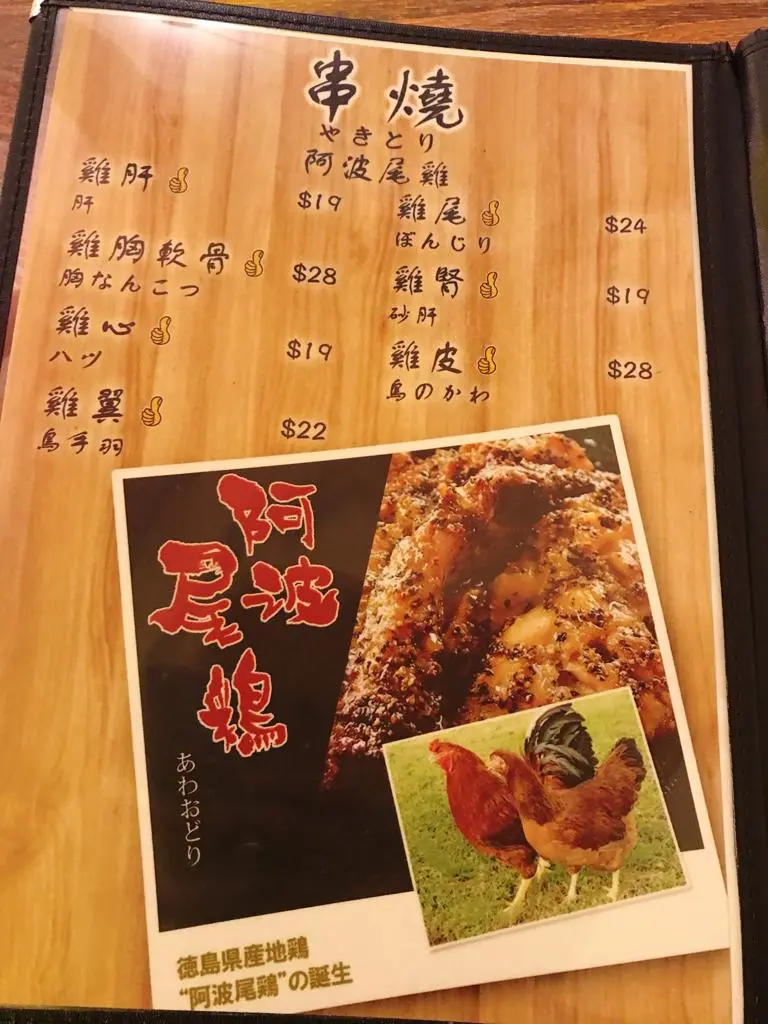 串燒
やきとり
阿波尾雞
雞肝
肝
$19
雞胸軟骨
胸なんこつ
$28
雞心
ハツ
$19
雞翼
鳥手羽
$22
雞尾
ぼんじり
$24
雞腎
砂肝
$19
雞皮
鳥のかわ
$28
阿波
尾鶏
あわおどり
徳島県産地鶏
“阿波尾鶏”の誕生